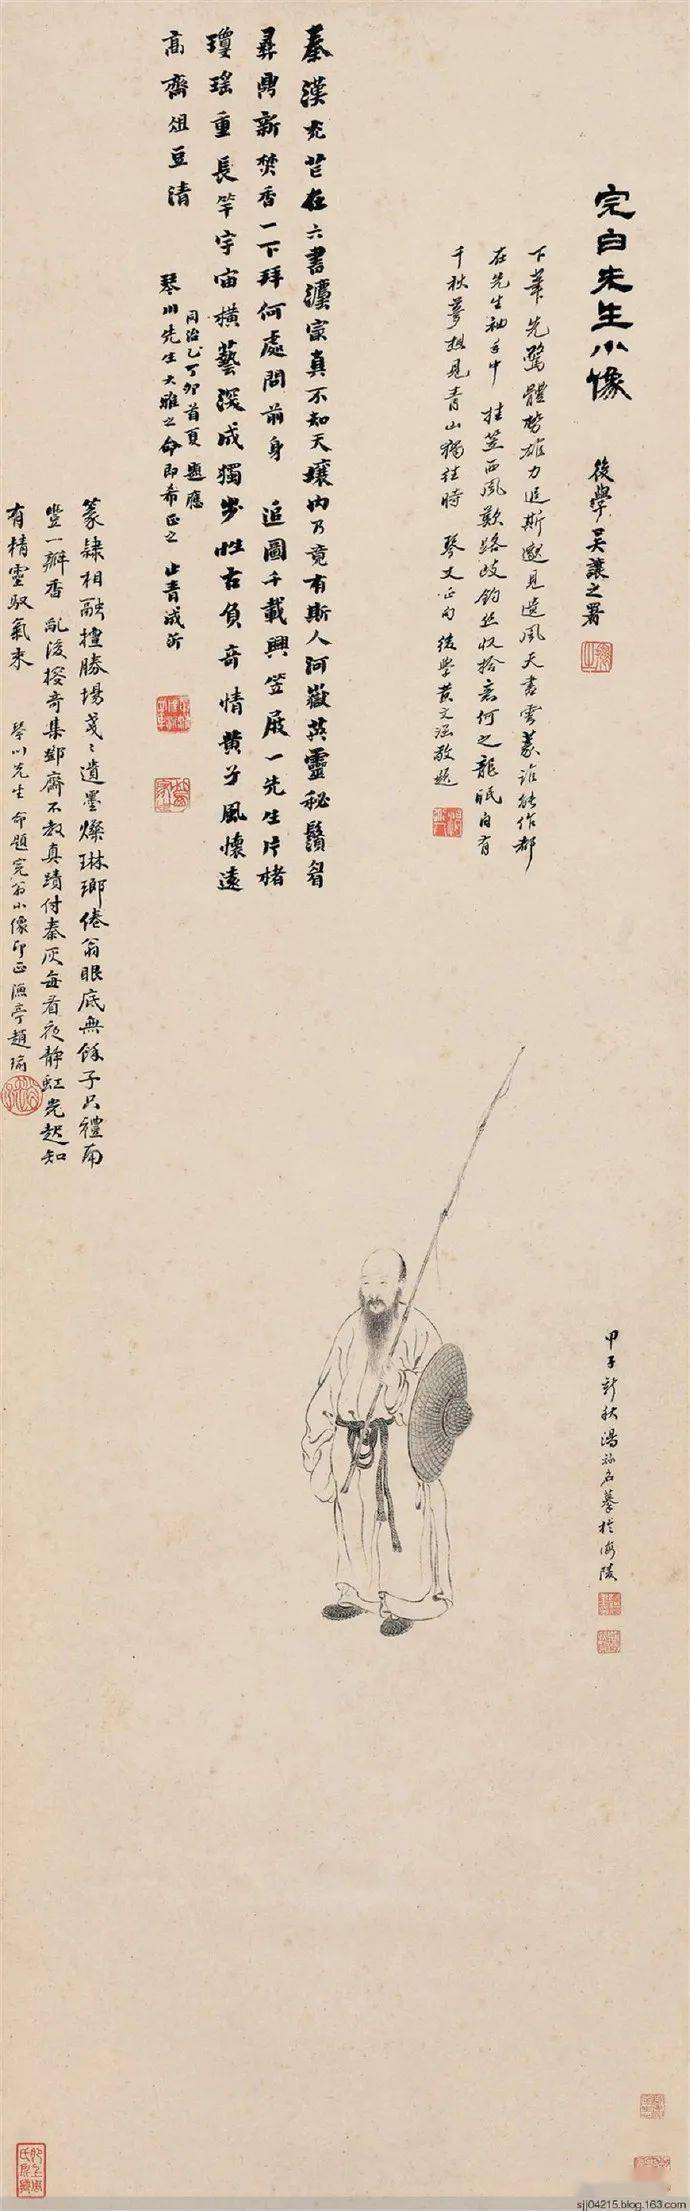 完白先生小像
後學吳讓之署
下筆先驚體勢雄力追斯邈見遺風天書雲篆誰能作都
在先生袖手中 挂笠西風歎路歧釣絲收拾意何之龍眠自有
千秋夢想見青山獨往時 琴父正句 後學黃文涵敬題
秦漢光芒在六書溯宗真不知天壤內乃竟有斯人河嶽英靈秘鬚眉
彝鼎新焚香一下拜何處問前身 追圖千載興笠屐一先生片楮
瓊瑤重長竿宇宙橫藝深成獨步性古負奇情黃子風懷遠
高齋俎豆清
同治乙丁卯首夏題應
琴川先生大雅之命即希正之 止青成沂
篆隸相融擅勝場戔〻遺墨燦琳瑯倦翁眼底無餘子只禮南
豐一瓣香 亂後搜奇集鄴齋不教真蹟付秦灰每看夜靜虹光起知
有精靈馭氣來
琴川先生命題完翁小像即正 漁亭趙瑜
甲子新秋湯祿名摹於海陵
sjj04215.blog.163.com